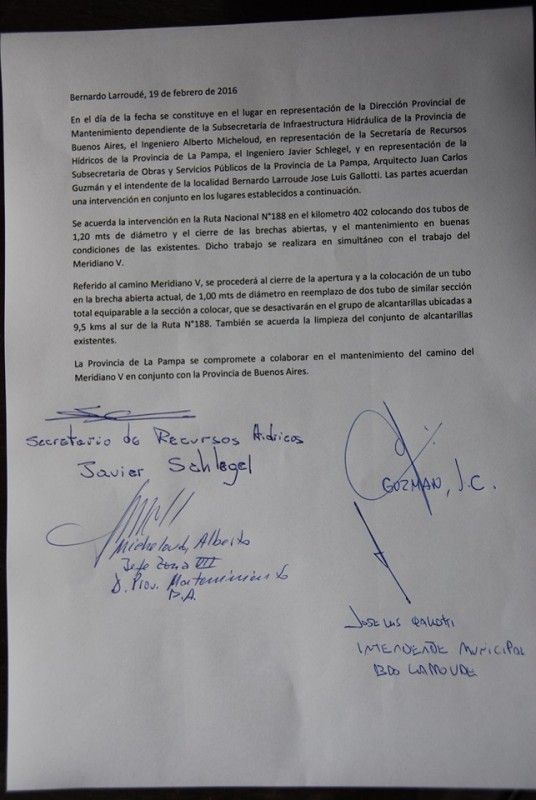 Bernardo Larroudé, 19 de febrero de 2016
En el día de la fecha se constituye en el lugar en representación de la Dirección Provincial de
Mantenimiento dependiente de la Subsecretaria de Infraestructura Hidráulica de la Provincia de
Buenos Aires, el Ingeniero Alberto Micheloud, en representación de la Secretaría de Recursos
Hídricos de la Provincia de La Pampa, el Ingeniero Javier Schlegel, y en representación de la
Subsecretaria de Obras y Servicios Públicos de la Provincia de La Pampa, Arquitecto Juan Carlos
Guzmán y el intendente de la localidad Bernardo Larroude Jose Luis Gallotti. Las partes acuerdan
una intervención en conjunto en los lugares establecidos a continuación.
Se acuerda la intervención en la Ruta Nacional N°188 en el kilometro 402 colocando dos tubos de
1,20 mts de diámetro y el cierre de las brechas abiertas, y el mantenimiento en buenas
condiciones de las existentes. Dicho trabajo se realizara en simultáneo con el trabajo del
Meridiano V.
Referido al camino Meridiano V, se procederá al cierre de la apertura y a la colocación de un tubo
en la brecha abierta actual, de 1,00 mts de diámetro en reemplazo de dos tubo de similar sección
total equiparable a la sección a colocar, que se desactivarán en el grupo de alcantarillas ubicadas a
9,5 kms al sur de la Ruta N°188. También se acuerda la limpieza del conjunto de alcantarillas
existentes.
La Provincia de La Pampa se compromete a colaborar en el mantenimiento del camino del
Meridiano V en conjunto con la Provincia de Buenos Aires.
Secretario de Recursos Hidricos
Javier Schlegel
GUZMAN, J.C.
Micheloud, Alberto
Jefe Zona VII
D. Prov. Mantenimiento
B.A.
JOSE LUIS GALLOTTI
INTENDENTE MUNICIPAL
BDO LARROUDE